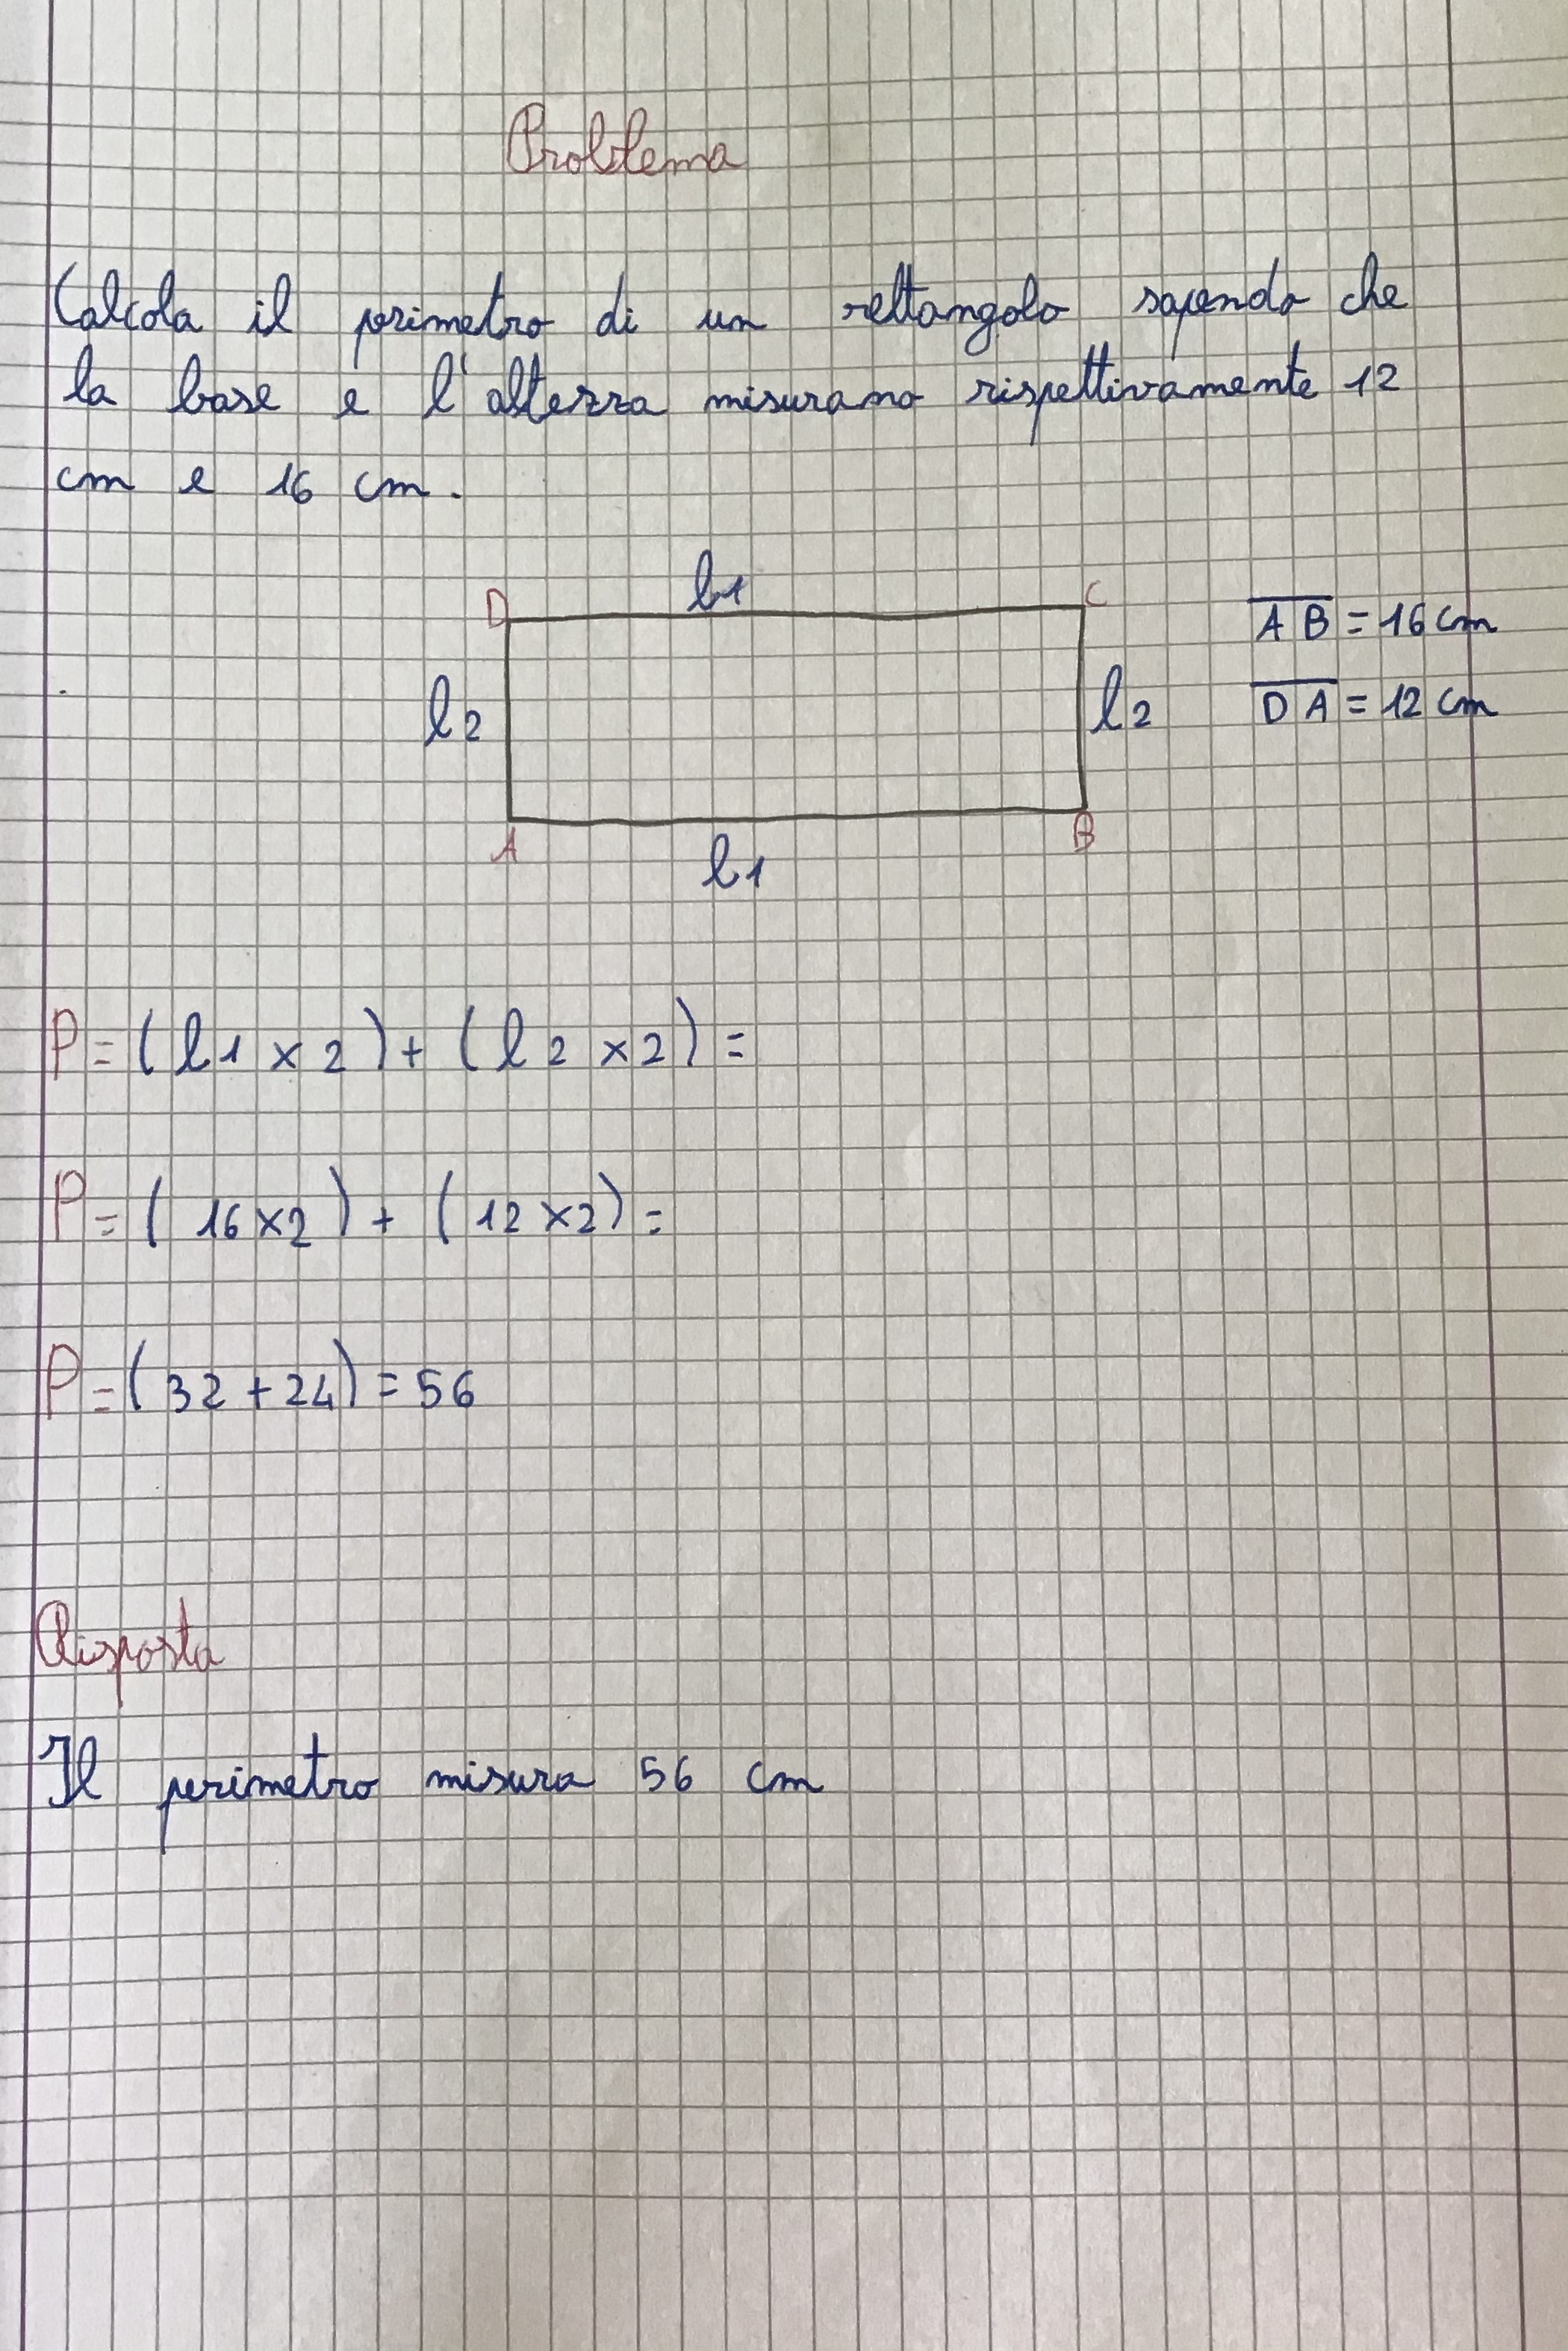 Problema
Calcola il perimetro di un rettangolo sapendo che
la base e l'altezza misurano rispettivamente 12
cm e 16 cm.
D l1 C
AB = 16 cm
l2 l2
DA = 12 cm
A l1 B
P = (l1 x 2) + (l2 x 2) =
P = (16 x 2) + (12 x 2) =
P = (32 + 24) = 56
Risposta
Il perimetro misura 56 cm